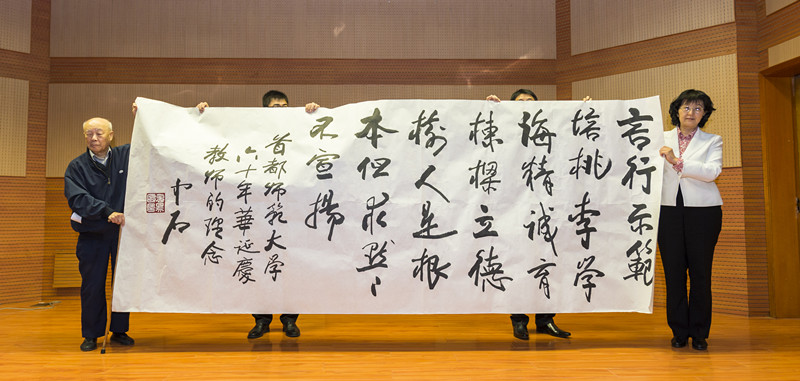 言行示範
培桃李学
诲精诚育
棟樑立德
樹人是根
本但求默〻
不宣揚
首都师範大学
六十年華延慶
教师的理念
中石